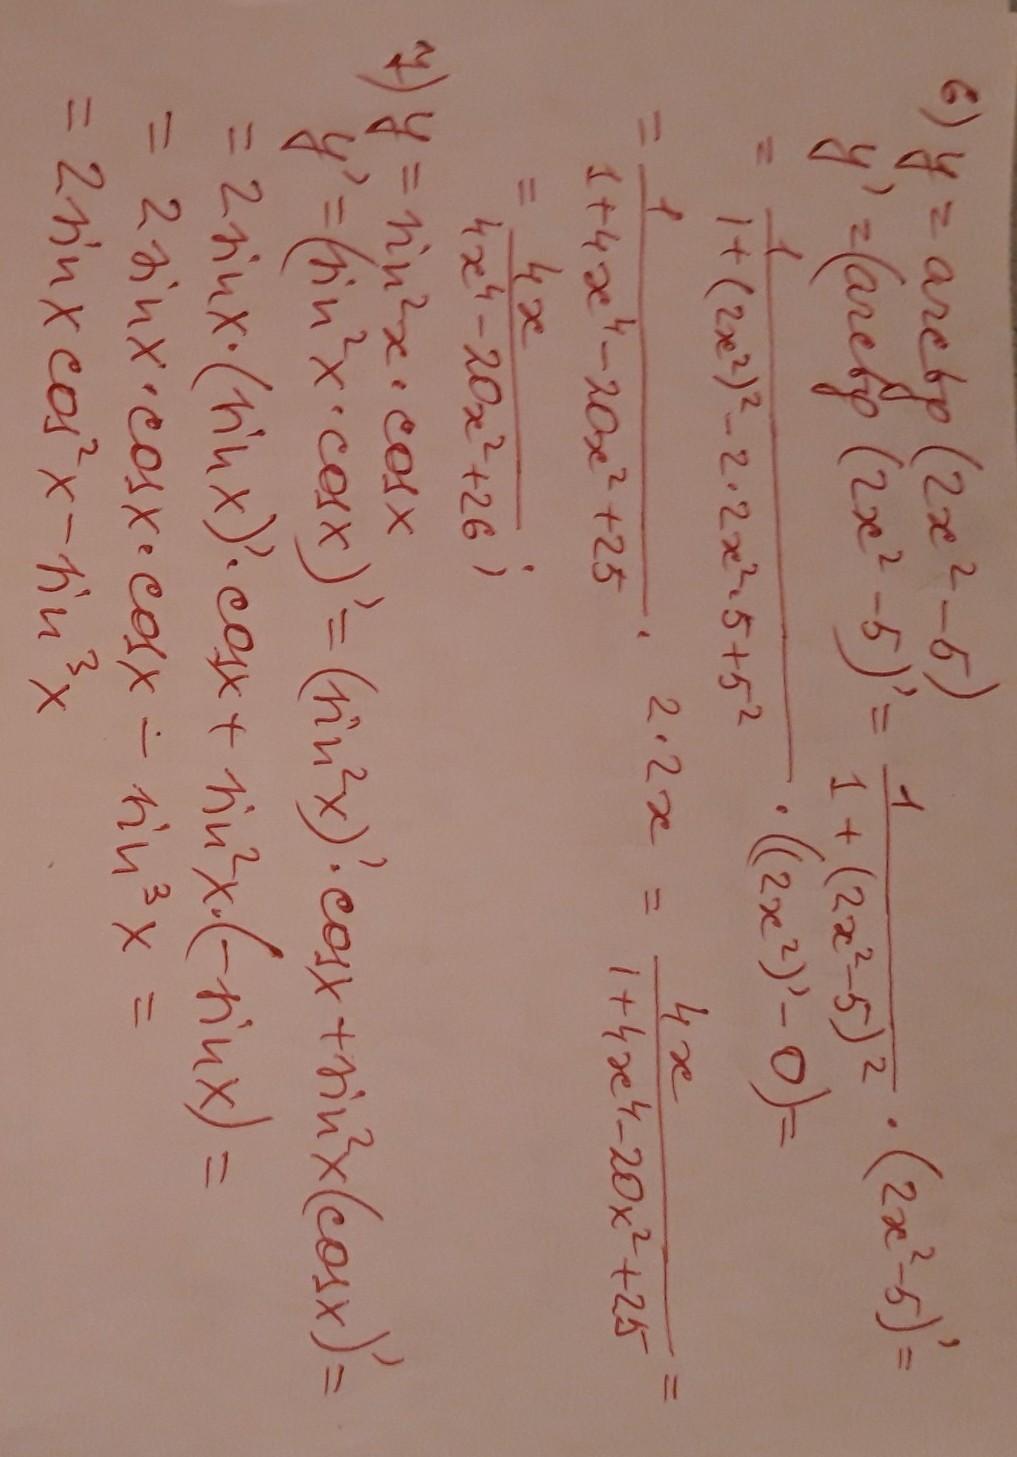 6) y = arctg (2x² - 5)
y' = (arctg (2x² - 5))' = 1/(1 + (2x² - 5)²) · (2x² - 5)' =
= 1/(1 + (2x²)² - 2·2x²·5 + 5²) · ((2x²)' - 0) =
= 1/(1 + 4x⁴ - 20x² + 25) · 2·2x = 4x/(1 + 4x⁴ - 20x² + 25) =
= 4x/(4x⁴ - 20x² + 26) ;
7) y = sin²x · cosx
y' = (sin²x · cosx)' = (sin²x)' · cosx + sin²x (cosx)' =
= 2sinx · (sinx)' · cosx + sin²x · (-sinx) =
= 2sinx · cosx · cosx - sin³x =
= 2sinx cos²x - sin³x